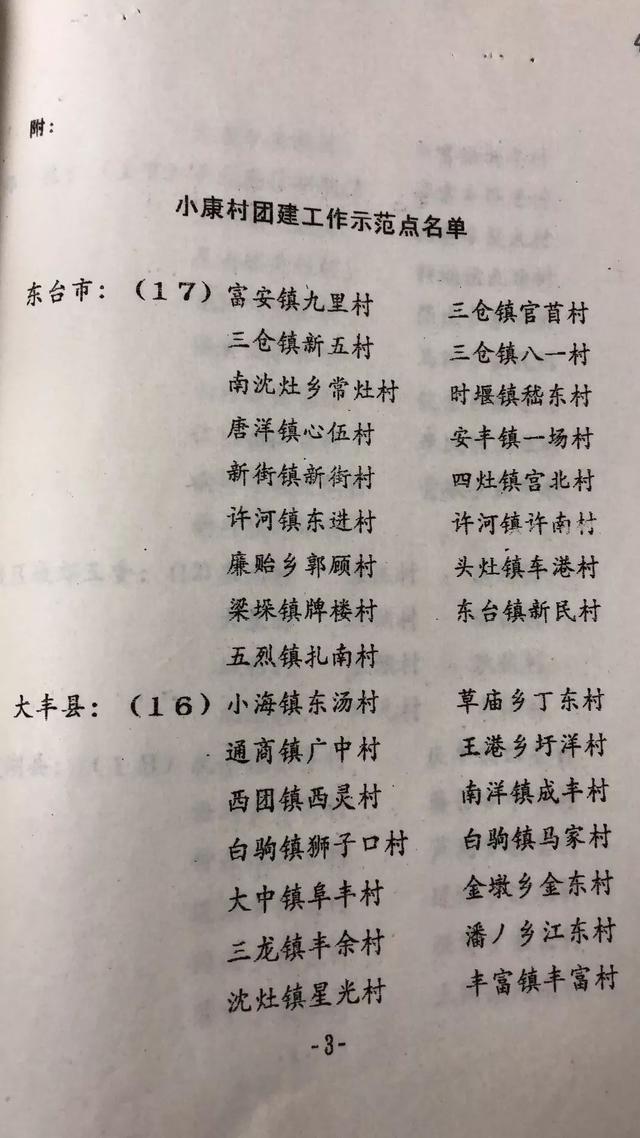 附：
小康村团建工作示范点名单
东台市：（17）富安镇九里村 三仓镇官首村
三仓镇新五村 三仓镇八一村
南沈灶乡常灶村 时堰镇嵇东村
唐洋镇心伍村 安丰镇一场村
新街镇新街村 四灶镇宫北村
许河镇东进村 许河镇许南村
廉贻乡郭顾村 头灶镇车港村
梁垛镇牌楼村 东台镇新民村
五烈镇扎南村
大丰县：（16）小海镇东汤村 草庙乡丁东村
通商镇广中村 王港乡圩洋村
西团镇西灵村 南洋镇成丰村
白驹镇狮子口村 白驹镇马家村
大中镇阜丰村 金墩乡金东村
三龙镇丰余村 潘丿乡江东村
沈灶镇星光村 丰富镇丰富村
-3-